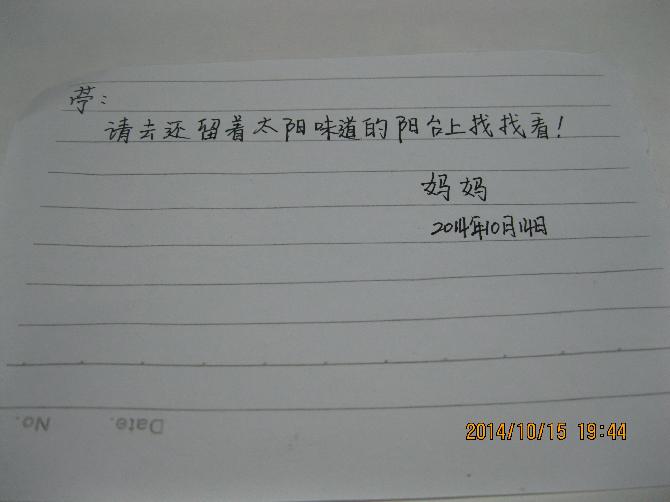 葶：
请去还留着太阳味道的阳台上找找看！
妈妈
2014年10月14日
No. Date.
2014/10/15 19:44